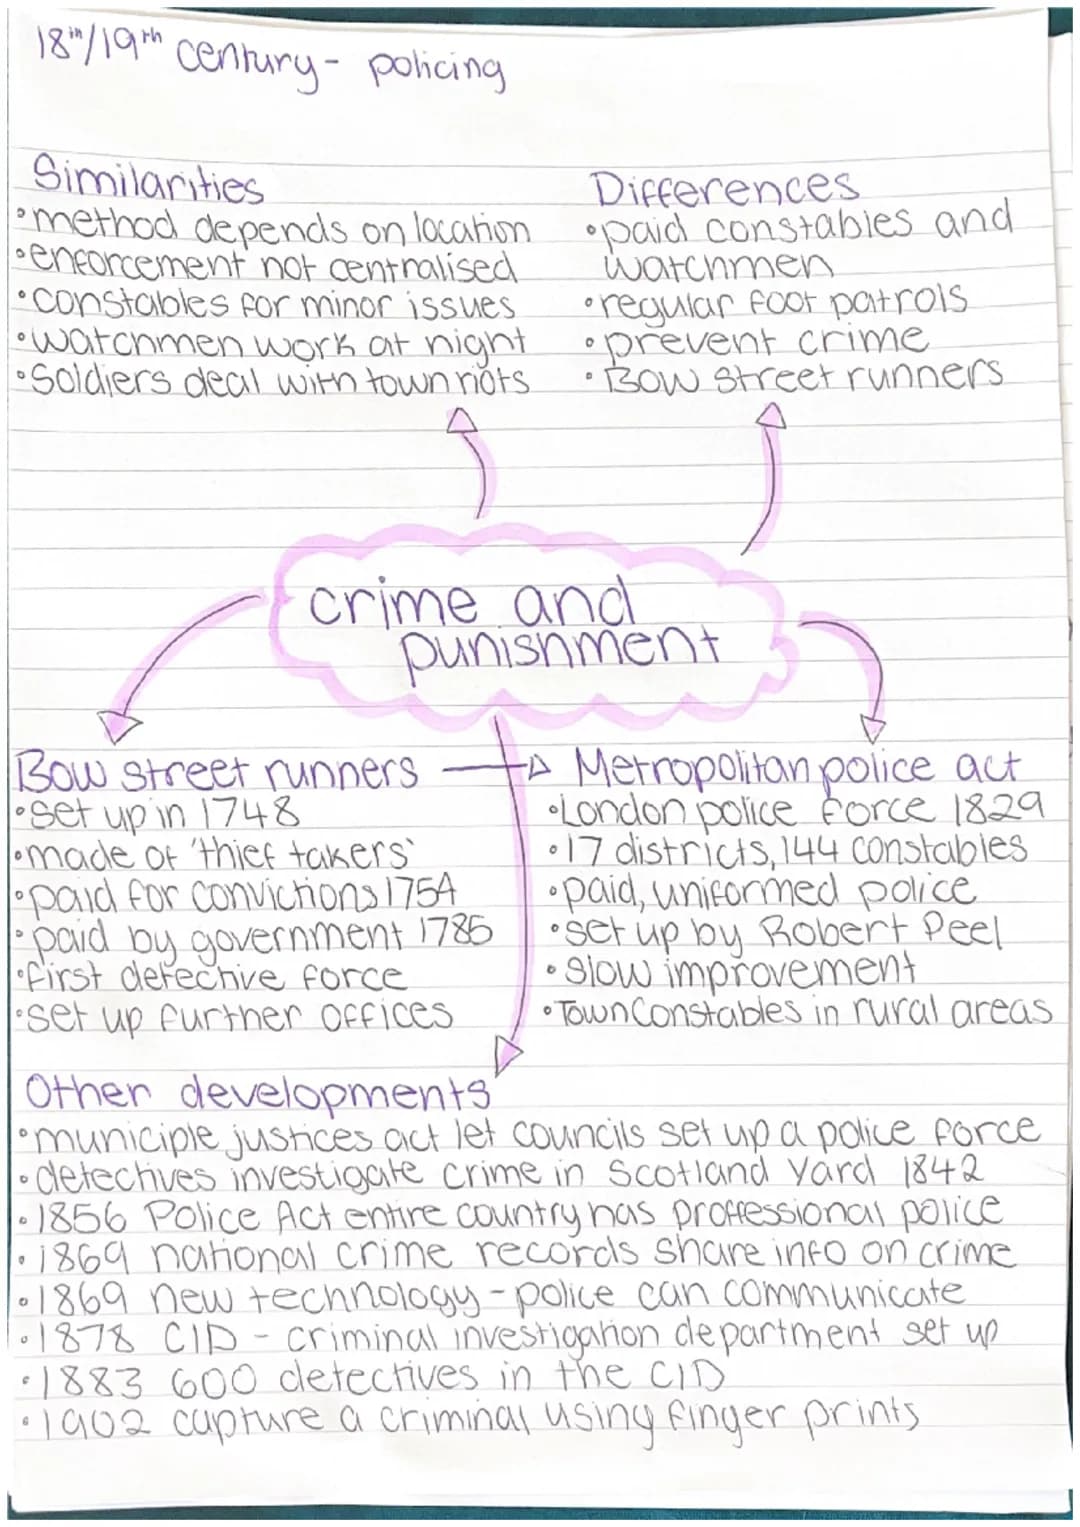 18th/19th century - policing
Similarities
•method depends on location
•enforcement not centralised
•constables for minor issues
•watchmen work at night
•Soldiers deal with town riots
Differences
•paid constables and
watchmen
•regular foot patrols
•prevent crime
•Bow street runners
crime and
punishment
Bow street runners
•set up in 1748
•made of 'thief takers'
•paid for convictions 1754
•paid by government 1785
•first detective force
•set up further offices
Metropolitan police act
•London police force 1829
•17 districts, 144 constables
•paid, uniformed police
•set up by Robert Peel
•slow improvement
•Town Constables in rural areas
Other developments
•municiple justices act let councils set up a police force
•detectives investigate crime in Scotland Yard 1842
•1856 Police Act entire country has proffessional police
•1869 national crime records share info on crime
•1869 new technology - police can communicate
•1878 CID - criminal investigation department set up
•1883 600 detectives in the CID
•1902 capture a criminal using finger prints